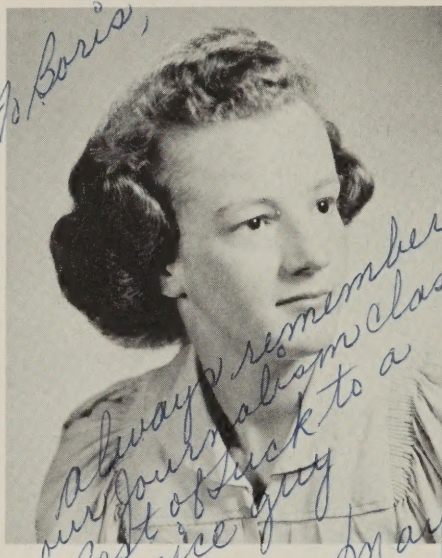 To Boris,
always remember
our Journalism clas
Best of luck to a
nice guy